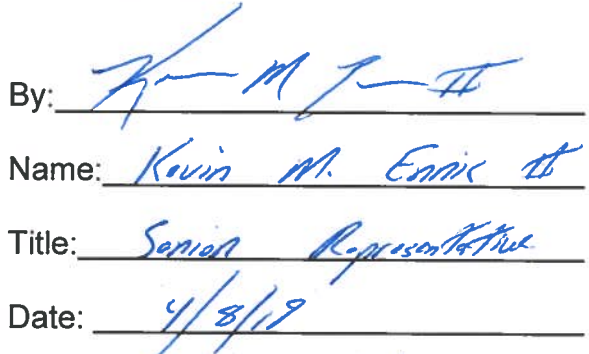 By: K M E II
Name: Kevin M. Ennis II
Title: Senior Representative
Date: 4/8/19